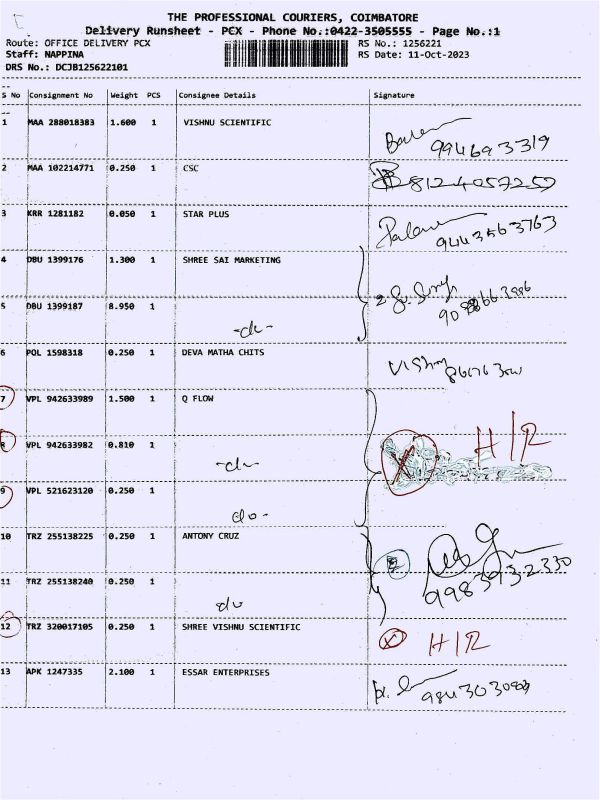 THE PROFESSIONAL COURIERS, COIMBATORE
Delivery Runsheet - PCX - Phone No.:0422-3505555 - Page No.:1
Route: OFFICE DELIVERY PCX RS No.: 1256221
Staff: NAPPINA RS Date: 11-Oct-2023
DRS No.: DCJB125622101
S No Consignment No Weight PCS Consignee Details Signature
1 MAA 288018383 1.600 1 VISHNU SCIENTIFIC
9946693319
2 MAA 102214771 0.250 1 CSC
8124057259
3 KRR 1281182 0.050 1 STAR PLUS
9443563763
4 DBU 1399176 1.300 1 SHREE SAI MARKETING
5 DBU 1399187 8.950 1 -do-
6 PQL 1598318 0.250 1 DEVA MATHA CHITS
Vishnu
7 VPL 942633989 1.500 1 Q FLOW
H/R
8 VPL 942633982 0.810 1 -do-
9 VPL 521623120 0.250 1 do-
10 TRZ 255138225 0.250 1 ANTONY CRUZ
9983932330
11 TRZ 255138240 0.250 1 do
12 TRZ 320017105 0.250 1 SHREE VISHNU SCIENTIFIC
H/R
13 APK 1247335 2.100 1 ESSAR ENTERPRISES